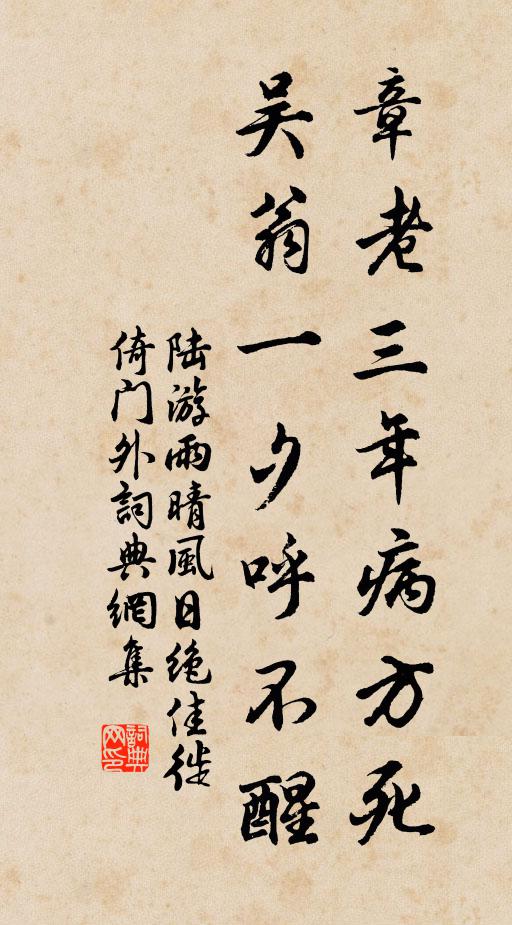 章老三年病方死
吴翁一夕呼不醒
陆游雨晴風日绝佳徙
倚门外詞典網集
詞典
网印